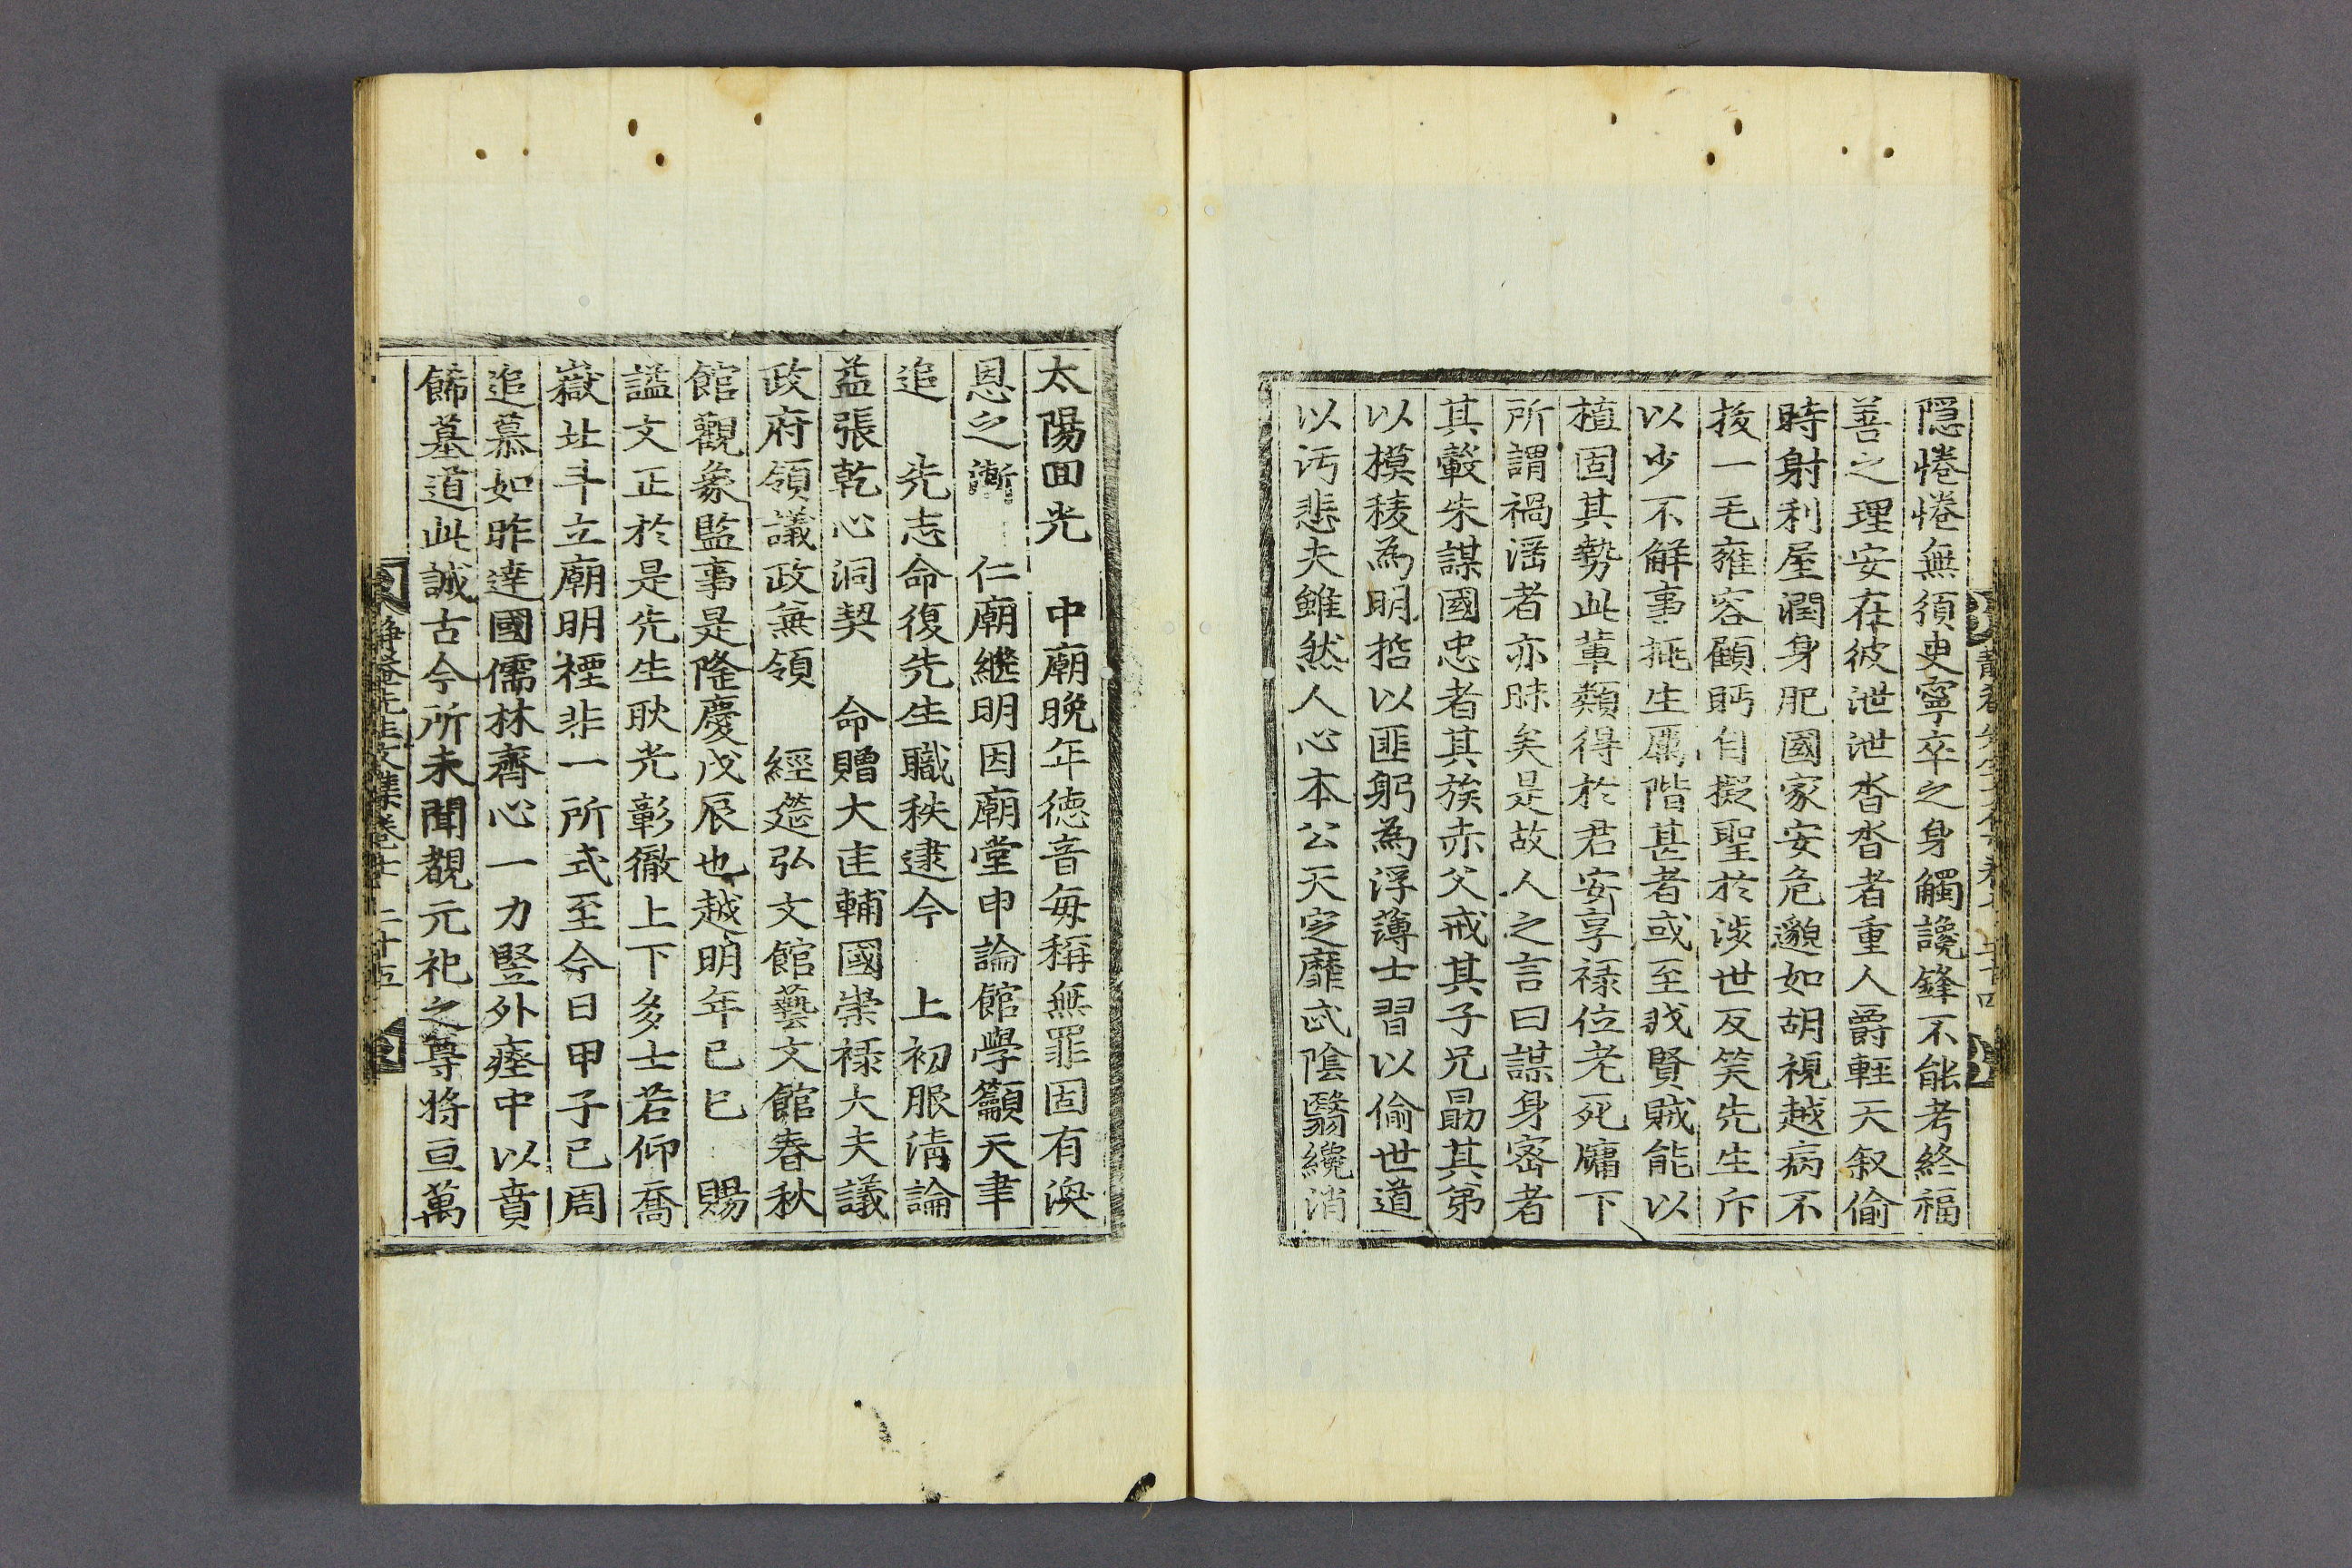 隠惓惓無須臾寧卒之身觸讒鋒不能考終福
善之理安在彼泄泄沓沓者重人爵輕天叙偷
時射利屋潤身肥國家安危邈如胡視越病不
拔一毛雍容顧眄自擬聖於涉世反笑先生斥
以少不解事挑生厲階甚者或至戕賢賊能以
植固其勢此輩類得於君安享祿位老死牖下
所謂禍淫者亦昧矣是故人之言曰謀身密者
其轂朱謀國忠者其族赤父戒其子兄勗其弟
以模稜為明哲以匪躬為浮薄士習以偷世道
以汚悲夫雖然人心本公天定靡忒陰翳纔消
太陽回光 中廟晩年德音每稱無罪固有渙
恩之漸 仁廟繼明因廟堂申論館學籲天聿
追 先志命復先生職秩逮今 上初服淸論
益張乾心洞契 命贈大匡輔國崇祿大夫議
政府領議政兼領 經筵弘文館藝文館春秋
館觀象監事是隆慶戊辰也越明年己巳 賜
諡文正於是先生耿光彰徹上下多士若仰喬
嶽北斗立廟明禋非一所式至今日甲子已周
追慕如昨達國儒林齊心一力竪外瘞中以賁
餙墓道此誠古今所未聞覩元祀之尊將亘萬
靜菴先生文集卷 二十五